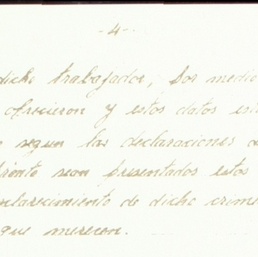 -4-
dicho trabajador, por medio
ofrecieron y estos datos est
segun las declaraciones d
frente sean presentados estos
esclarecimiento de dicho crime
que merecen.